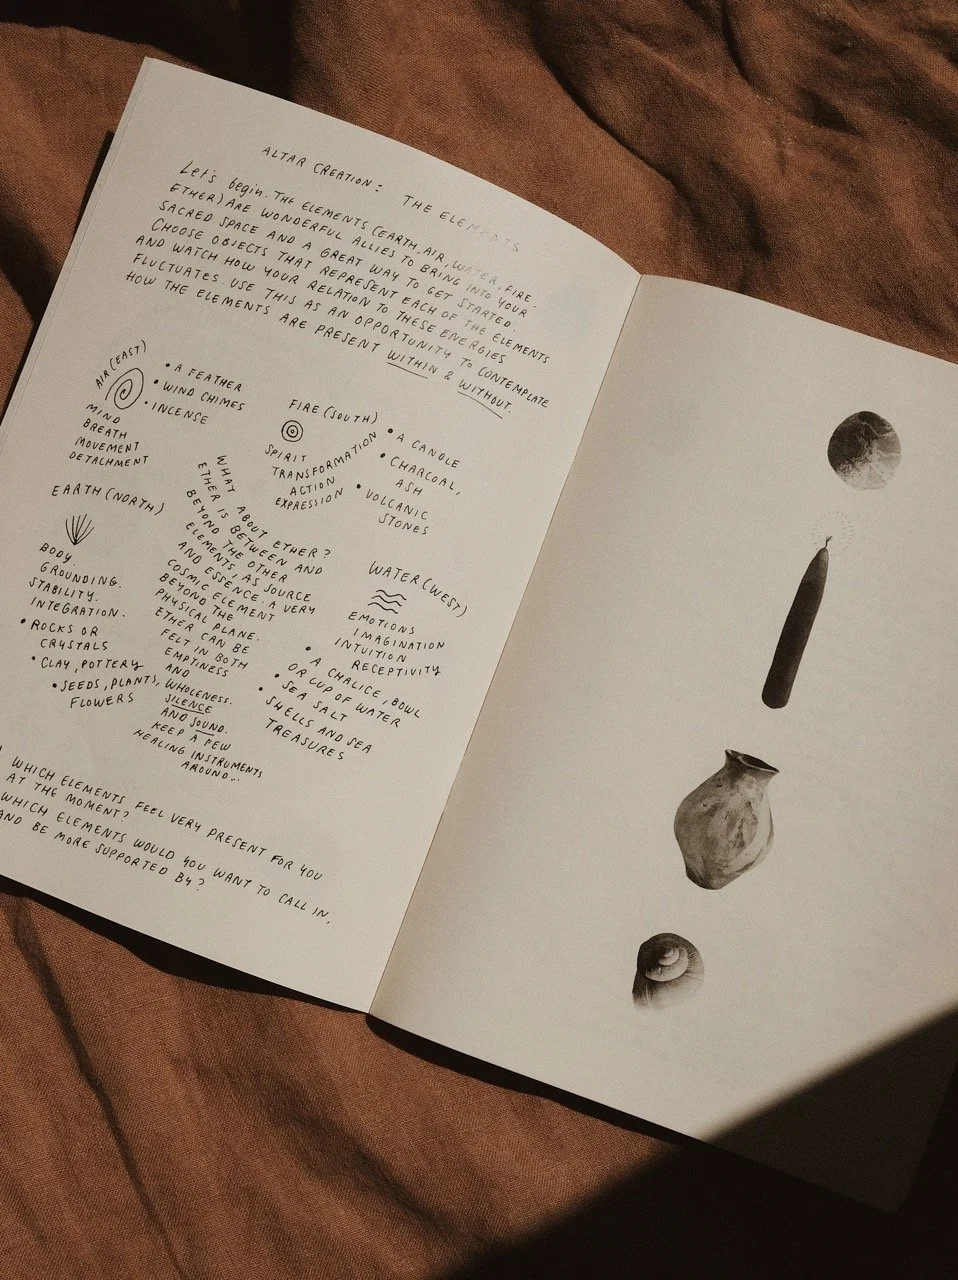 ALTAR CREATION: THE ELEMENTS
Let's begin. THE ELEMENTS (EARTH, AIR, WATER, FIRE,
ETHER) ARE WONDERFUL ALLIES TO BRING INTO YOUR
SACRED SPACE AND A GREAT WAY TO GET STARTED.
CHOOSE OBJECTS THAT REPRESENT EACH OF THE ELEMENTS
AND WATCH HOW YOUR RELATION TO THESE ENERGIES
FLUCTUATES. USE THIS AS AN OPPORTUNITY TO CONTEMPLATE
HOW THE ELEMENTS ARE PRESENT WITHIN & WITHOUT.
AIR (EAST)
• A FEATHER
• WIND CHIMES
• INCENSE
MIND
BREATH
MOVEMENT
DETACHMENT
FIRE (SOUTH)
SPIRIT
TRANSFORMATION
ACTION
EXPRESSION
• A CANDLE
• CHARCOAL,
ASH
• VOLCANIC
STONES
EARTH (NORTH)
BODY.
GROUNDING.
STABILITY.
INTEGRATION.
• ROCKS OR
CRYSTALS
• CLAY, POTTERY
• SEEDS, PLANTS,
FLOWERS
WHAT ABOUT ETHER?
ETHER IS BETWEEN AND
BEYOND THE OTHER
ELEMENTS, AS SOURCE
AND ESSENCE. A VERY
COSMIC ELEMENT
BEYOND THE
PHYSICAL PLANE.
ETHER CAN BE
FELT IN BOTH
EMPTINESS
AND
WHOLENESS.
SILENCE
AND SOUND.
KEEP A FEW
HEALING INSTRUMENTS
AROUND..
WATER (WEST)
EMOTIONS
IMAGINATION
INTUITION
RECEPTIVITY
• A CHALICE, BOWL
OR CUP OF WATER
• SEA SALT
• SHELLS AND SEA
TREASURES
WHICH ELEMENTS FEEL VERY PRESENT FOR YOU
AT THE MOMENT?
WHICH ELEMENTS WOULD YOU WANT TO CALL IN,
AND BE MORE SUPPORTED BY?